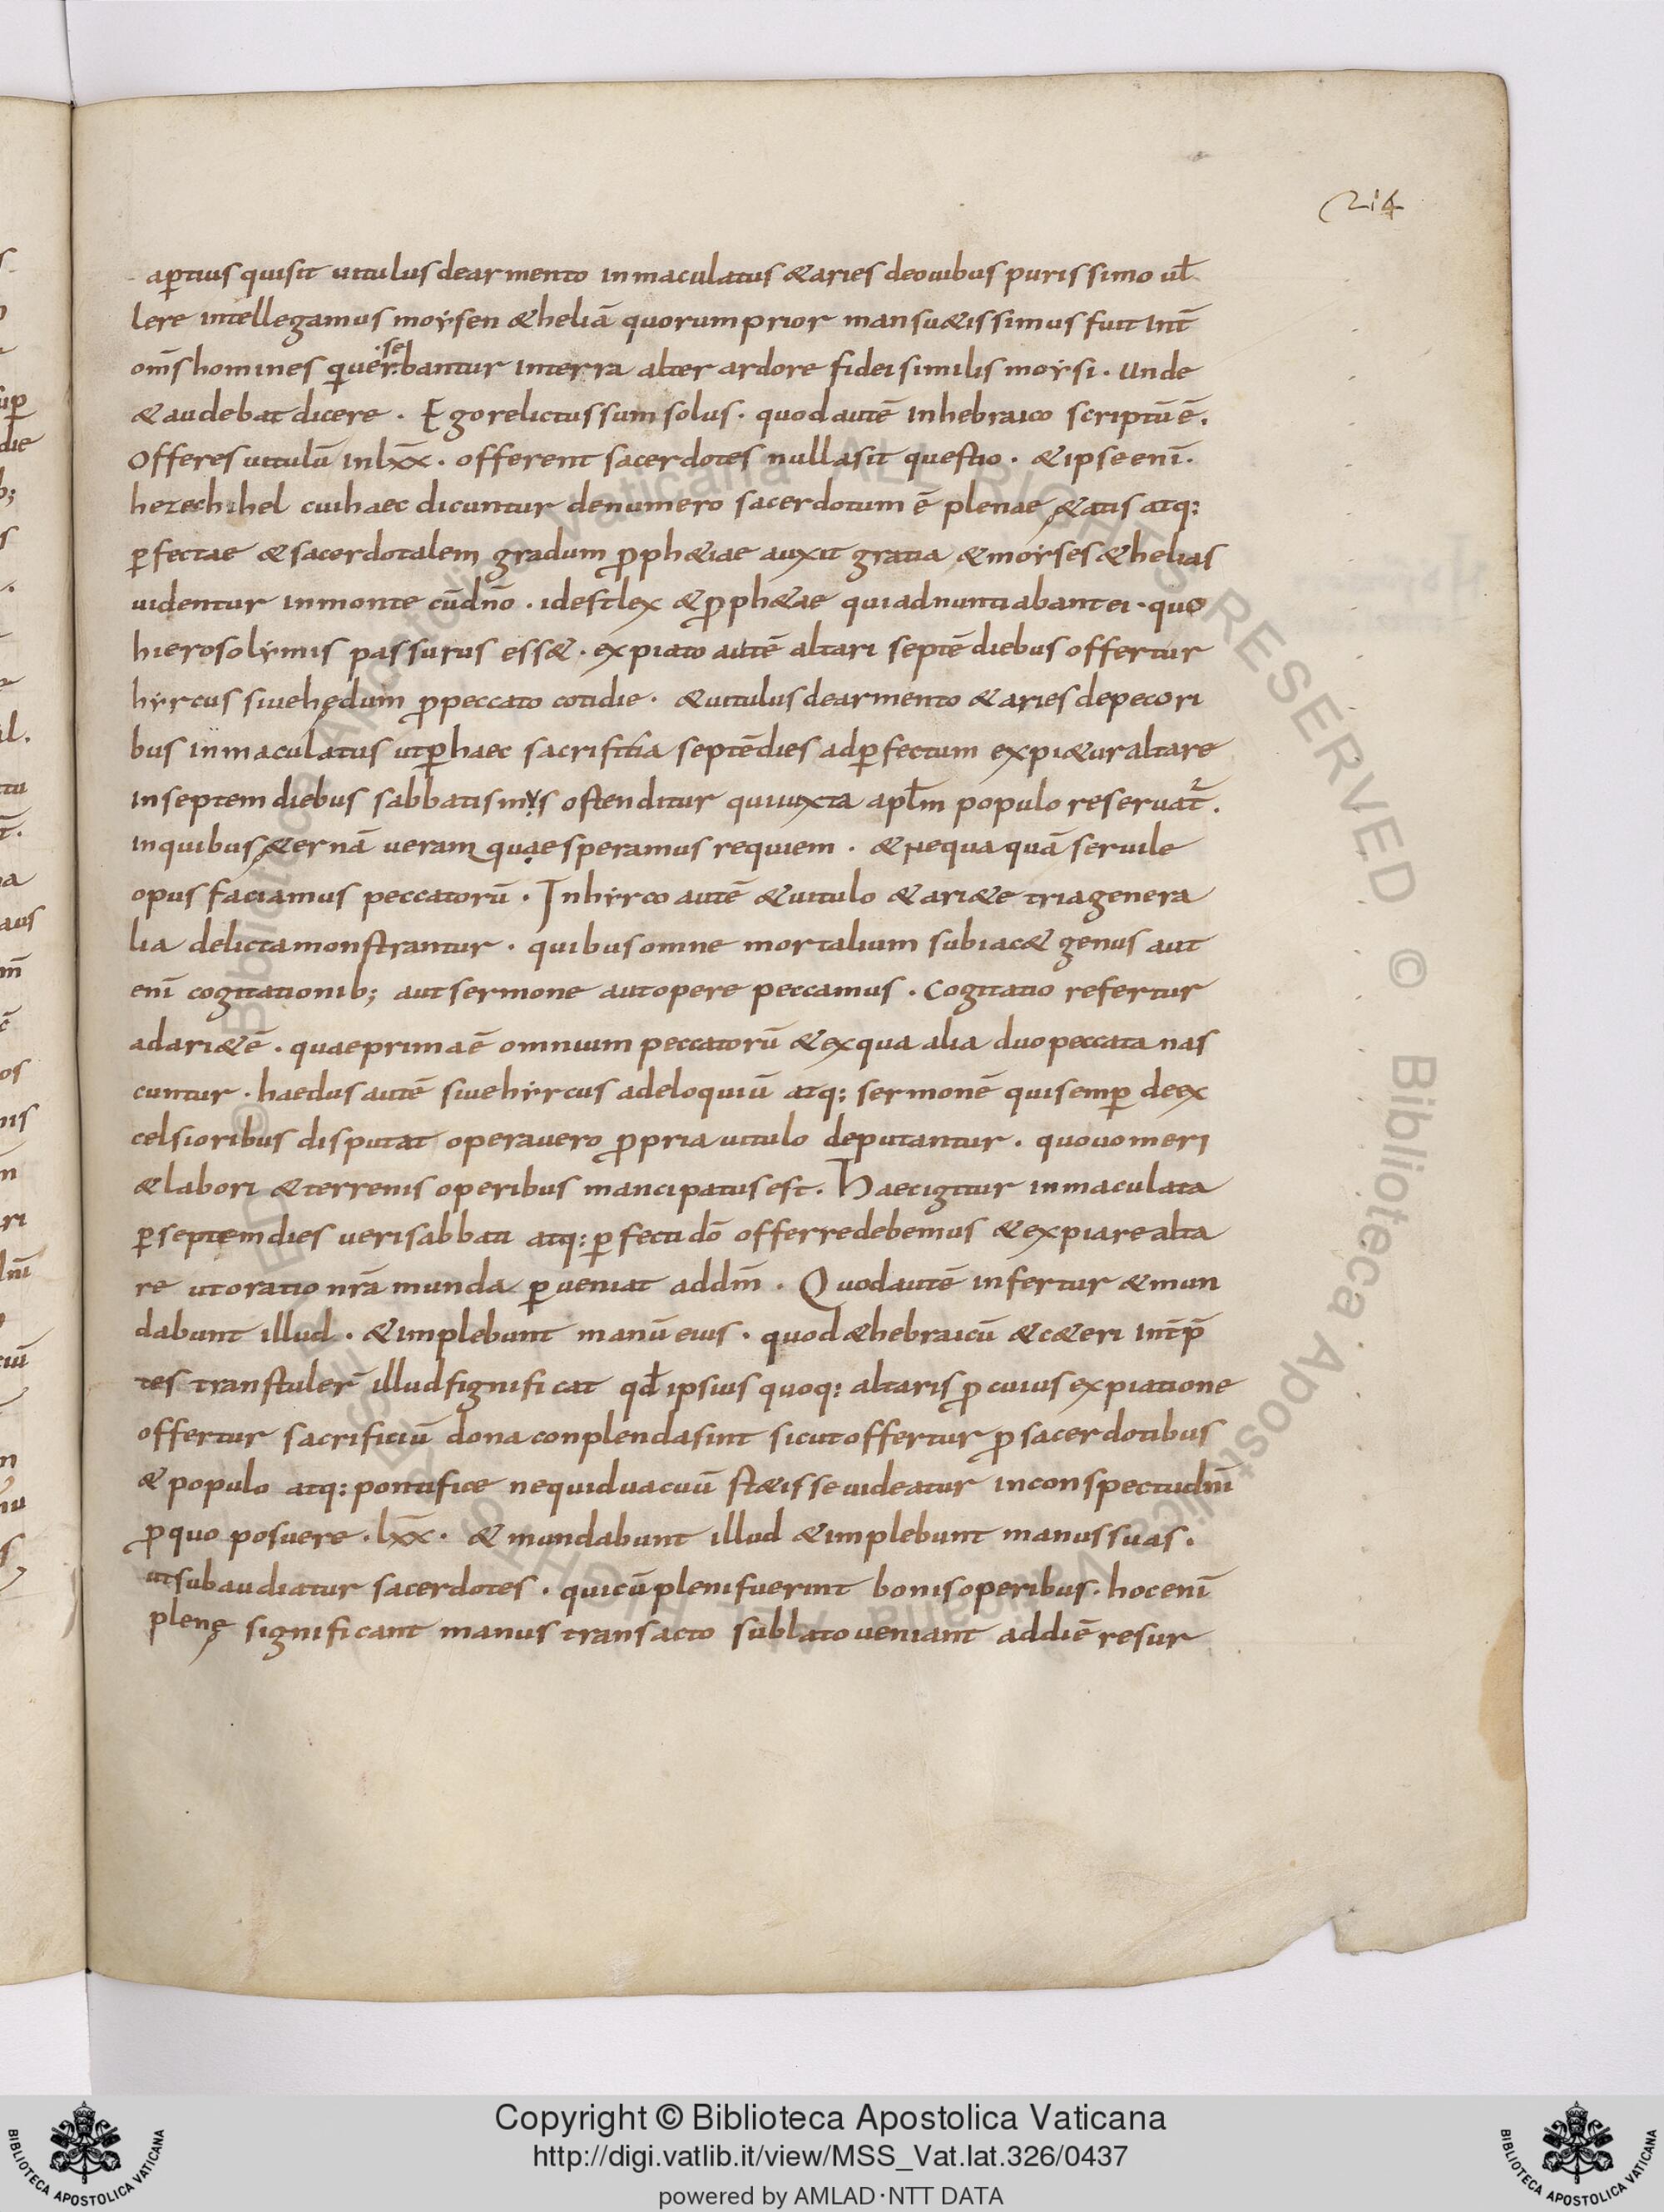 214
aꝑtius quisit uitulus dearmento inmaculatus &aries deouibus purissimo uł
lere intellegamus moẏsen &heliā quorumprior mansu&issimus fuit Int̄
om̄s homines quersebantur interra alter ardore fidei similis moẏsi. Unde
&audebat dicere. Ego relictus sum solus. quod autē inhebraico scriptū ē.
Offeres uitulū In lxx̄. offerent sacerdotes nulla sit questio. &ipse enī.
hezechihel cui haec dicuntur denumero sacerdotum ē plenae &atis atq:
ꝑfectae &sacerdotalem gradum ꝓph&iae auxit gratia &moẏses &helias
uidentur inmonte cūdn̄o. idest lex &ꝓph&ae qui adnuntiabant ei. quo
hierosolẏmis passurus ess&. expiato autē altari septē diebus offertur
hẏrcus siue hędum ꝓpeccato cotidie. &uitulus dearmento &aries depecori
bus inmaculatus utꝑhaec sacrifitia septēdies adꝑfectum expi&ur altare
in septem diebus sabbatismẏs ostenditur quiiuxta apłm populo reseruat̄.
in quibus &ernā ueram quae speramus requiem. &nequaquā seruile
opus faciamus peccatorū. In hẏrco autē &uitulo &ari&e tria genera
lia delicta monstrantur. quibus omne mortalium subiac& genus aut
enī cogitationib; aut sermone aut opere peccamus. Cogitatio refertur
ad ari&ē. quae prima ē omnium peccatorū &ex qua alia duo peccata nas
cuntur. haedus autē siue hẏrcus ad eloquiū atq: sermonē qui semꝑ de ex
celsioribus disputat opera uero ꝓpria uitulo deputantur. quo uomeri
&labori &terrenis operibus mancipatus est. Haec igitur inmaculata
ꝑseptem dies ueri sabbati atq: ꝑfecti dō offerre debemus &expiare alta
re ut oratio nr̄a munda ꝑueniat addm̄. Quod autē infertur &mun
dabunt illud. &implebunt manū eius. quod &hebraicū &c&eri int̄p̄
tes transtuler̄ illud significat qđ ipsius quoq: altaris ꝓ cuius expiatione
offertur sacrificiū dona conplenda sint sicut offertur ꝓ sacerdotibus
&populo atq: pontifice ne quid uacuū st&isse uideatur in conspectu dn̄i
ꝓ quo posuere. lxx̄. &mundabunt illud &implebunt manus suas.
ut subaudiatur sacerdotes. qui cū pleni fuerint bonis operibus. hoc enī
plenę significant manus transacto sublato ueniant ad diē resur
© Biblioteca Apostolica Vaticana ALL RIGHTS RESERVED
Copyright © Biblioteca Apostolica Vaticana
http://digi.vatlib.it/view/MSS_Vat.lat.326/0437
powered by AMLAD·NTT DATA
BIBLIOTECA APOSTOLICA VATICANA
BIBLIOTECA APOSTOLICA VATICANA